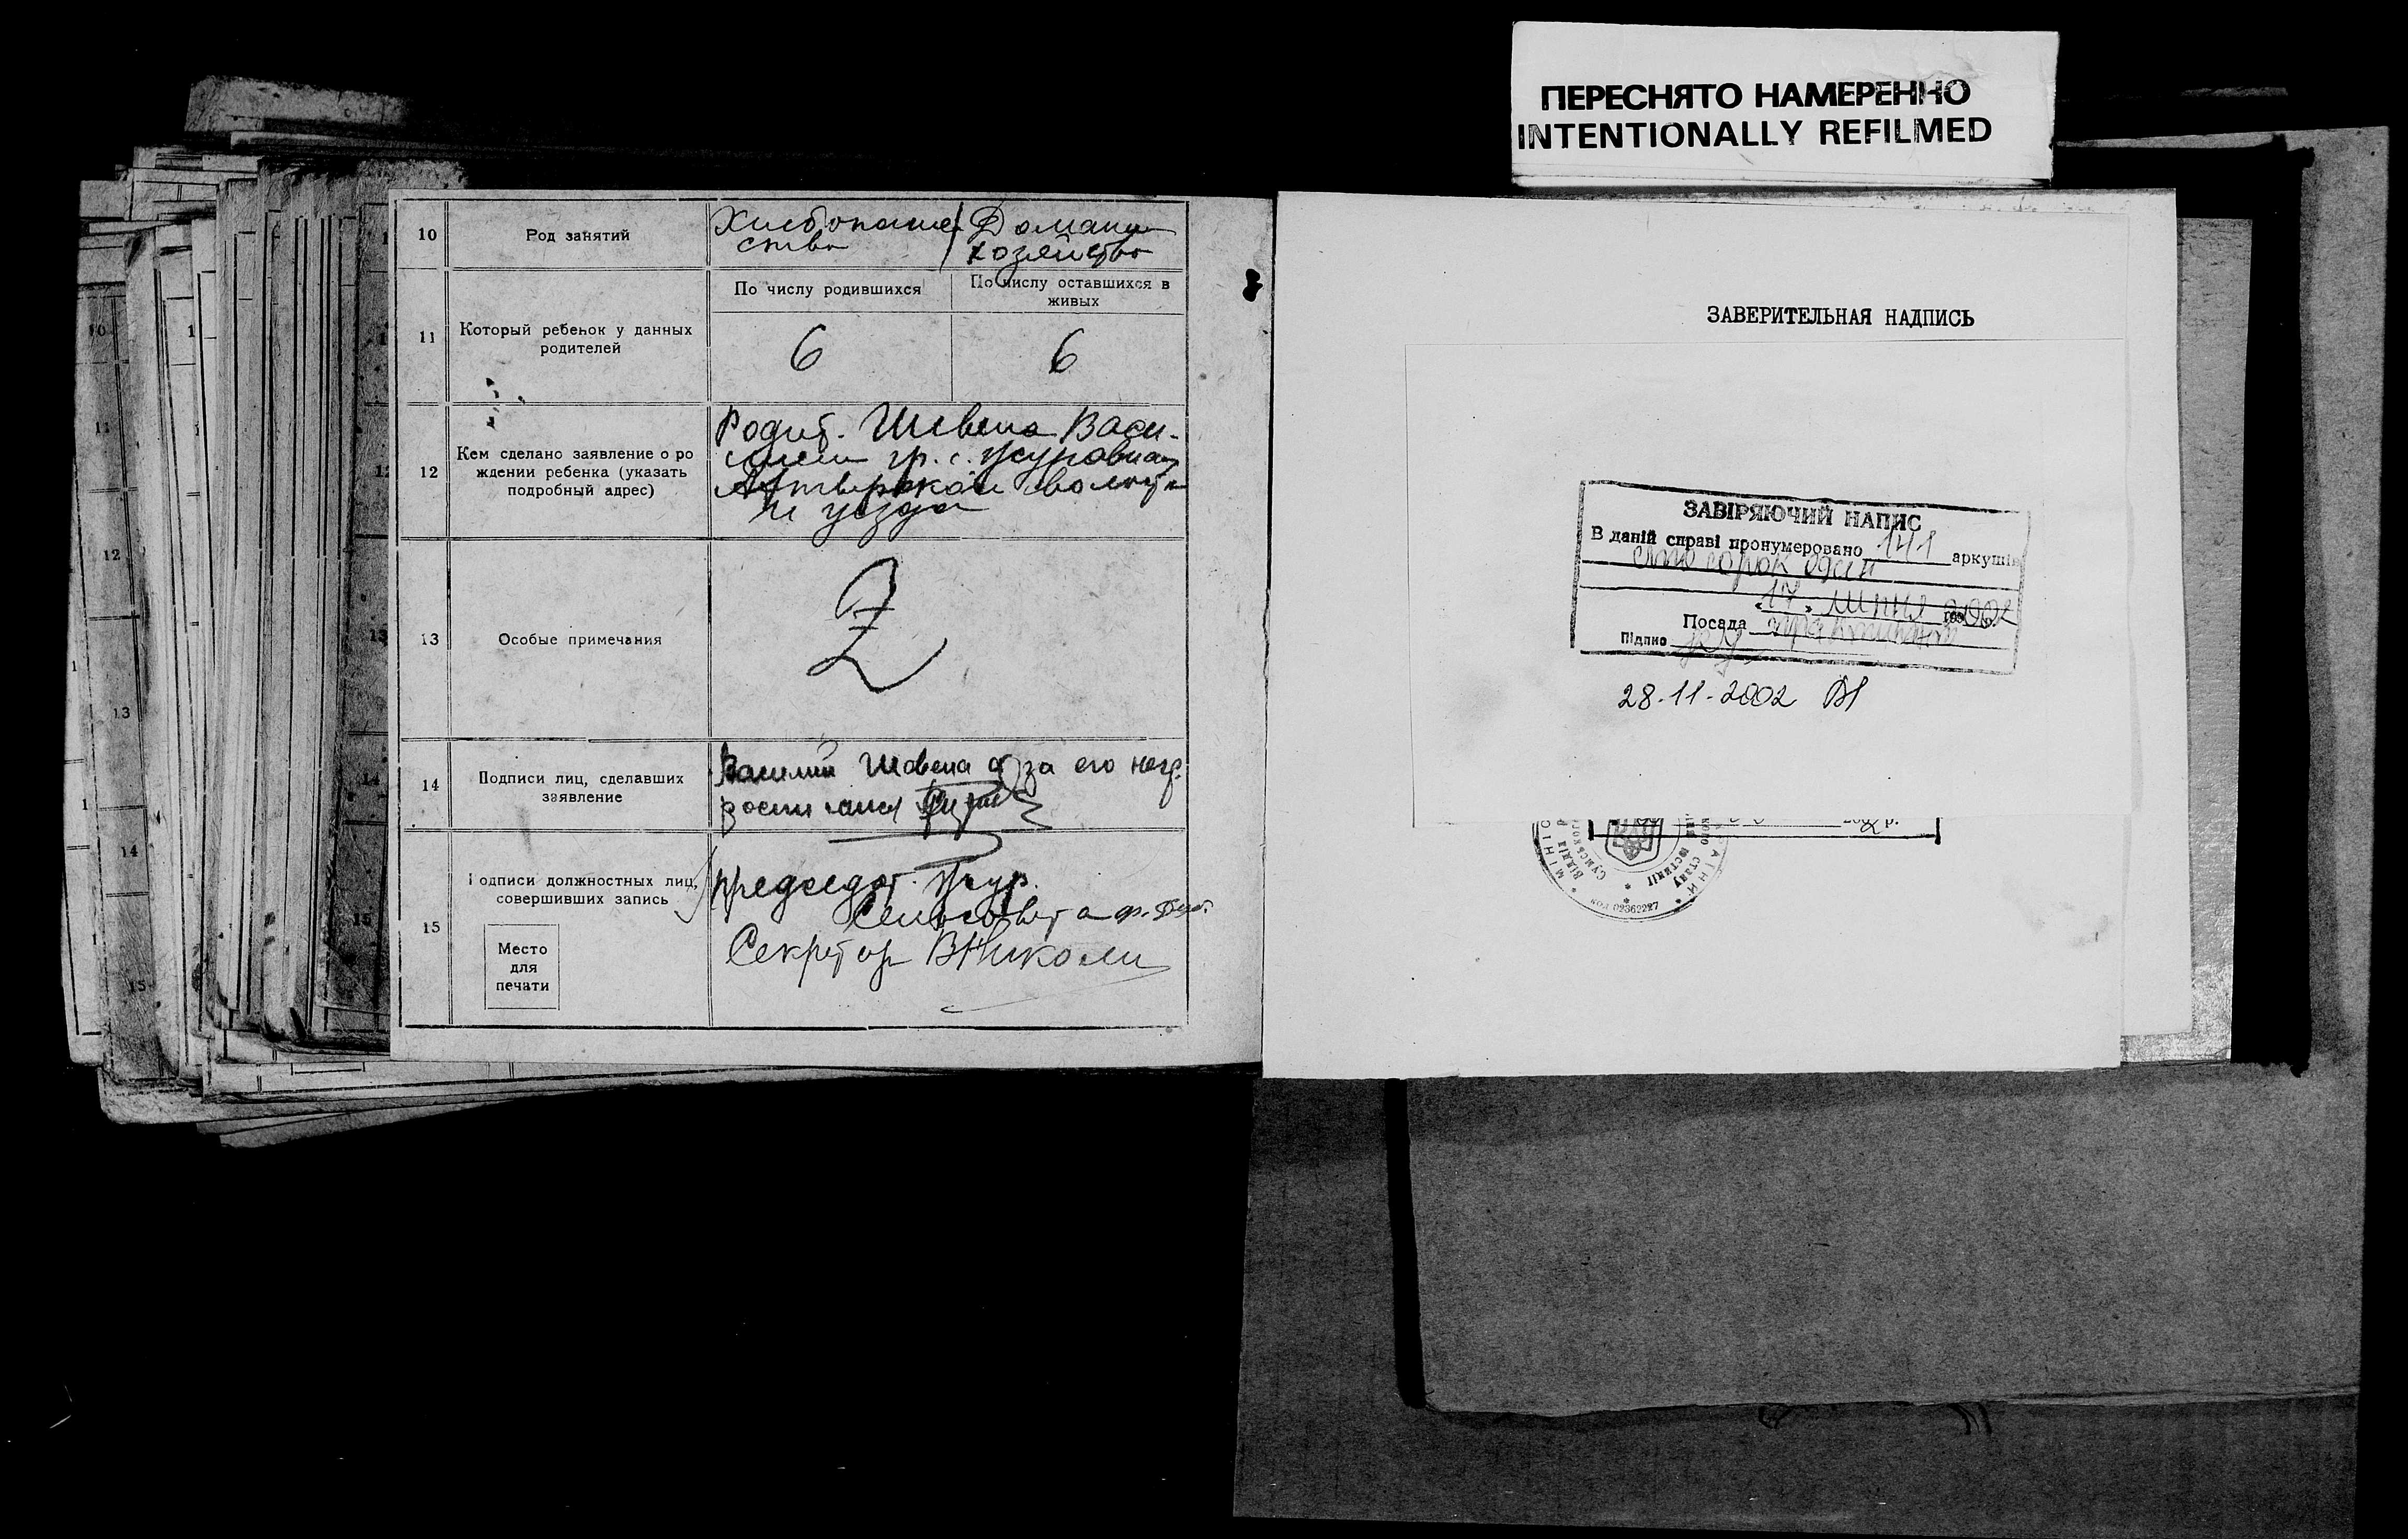 ПЕРЕСНЯТО НАМЕРЕННО
INTENTIONALLY REFILMED
10
Род занятий
Хлебопаше
ство
Домашн
хозяйство
11
Который ребенок у данных
родителей
По числу родившихся
По числу оставшихся в
живых
6
6
12
Кем сделано заявление о ро
ждении ребенка (указать
подробный адрес)
Родит. Шевела Васи-
лием гр. с.
волости
и уезда
13
Особые примечания
Z
14
Подписи лиц, сделавших
заявление
Василий Шевела а за его негр.
росписался
15
Подписи должностных лиц,
совершивших запись
Место
для
печати
Председат. Жур.
Сельсовета
Секретар ВНиколи
10
11
12
13
14
15
ЗАВЕРИТЕЛЬНАЯ НАДПИСЬ
ЗАВІРЯЮЧИЙ НАПИС
В даній справі пронумеровано 141 аркушів
сто сорок один
17 липня 2002 р.
Посада
Підпис
28.11.2002
код 02362227